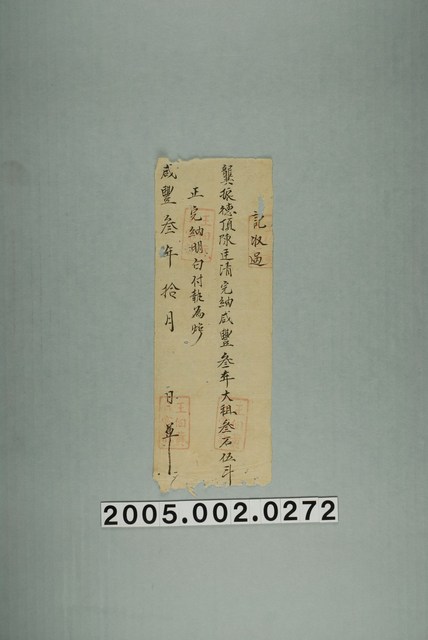 記收過
龔振德頂陳廷清完納咸豐叁年大租叁石伍斗
正完納明白付執為炤
咸豐叁年拾月 日單
2005.002.0272